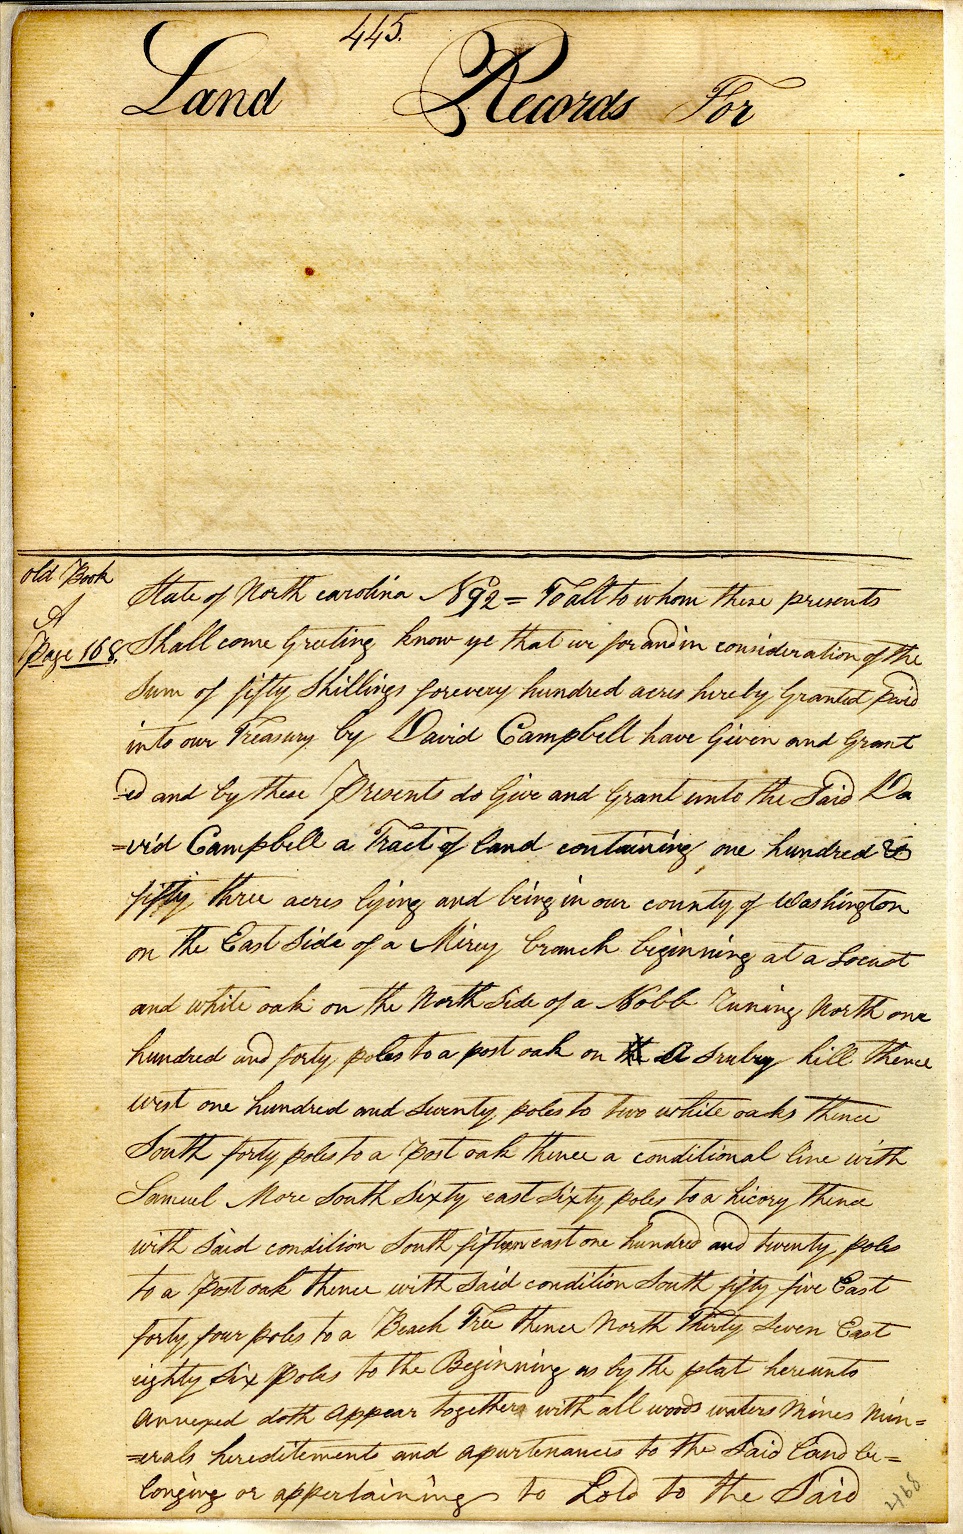 445.
Land Records For
old Book
A
Page 168.
State of North carolina No 92 = To all to whom these presents
Shall come Greeting know ye that we for and in consideration of the
Sum of fifty Shillings for every hundred acres hereby Granted paid
into our Treasury by David Campbell have Given and Grant
=ed and by these Presents do Give and Grant unto the Said Da
=vid Campbell a Tract of land containing one hundred &
fifty three acres lying and being in our county of Washington
on the East Side of a Mirey branch beginning at a Locust
and white oak on the North Side of a Nobb Runing North one
hundred and forty poles to a post oak on A hill thence
west one hundred and Seventy poles to two white oaks thence
South forty poles to a Post oak thence a conditional line with
Samuel More South Sixty east Sixty poles to a hicory thence
with Said condition South fifteen east one hundred and twenty poles
to a Post oak thence with Said condition South fifty five East
forty four poles to a Beach Tree thence North Thirty Seven East
eighty Six Poles to the Beginning as by the plat hereunto
annexed doth Appear together with all woods waters Mines Min=
=erals hereditements and apurtenances to the Said Land be=
longing or appertaining to Hold to the Said
468